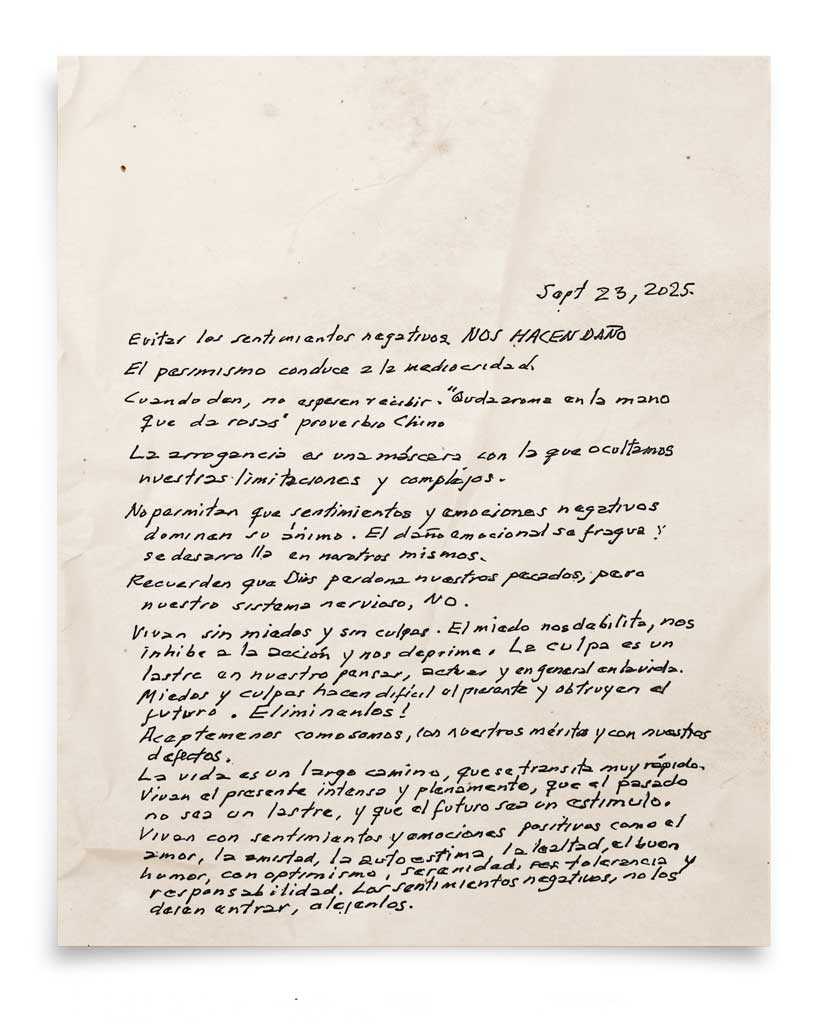 Sept 23, 2025.
Evitar los sentimientos negativos. NOS HACEN DAÑO
El pesimismo conduce a la mediocridad.
Cuando den, no esperen recibir. "Queda aroma en la mano
que da rosas" proverbio Chino
La arrogancia es una máscara con la que ocultamos
nuestras limitaciones y complejos.
No permitan que sentimientos y emociones negativos
dominen su ánimo. El daño emocional se fragua y
se desarrolla en nosotros mismos.
Recuerden que Dios perdona nuestros pecados, pero
nuestro sistema nervioso, NO.
Vivan sin miedos y sin culpas. El miedo nos debilita, nos
inhibe a la acción y nos deprime. La culpa es un
lastre en nuestro pensar, actuar y en general en la vida.
Miedos y culpas hacen dificil el presente y obtruyen el
futuro. Eliminenlos!
Aceptemenos como somos, con nuestros méritos y con nuestros
defectos.
La vida es un largo camino, que se transita muy rápido.
Vivan el presente intensa y plenamente, que el pasado
no sea un lastre, y que el futuro sea un estimulo.
Vivan con sentimientos y emociones positivas como el
amor, la amistad, la autoestima, la lealtad, el buen
humor, con optimismo, serenidad, tolerancia y
responsabilidad. Los sentimientos negativos, no los
dejen entrar, alejenlos.